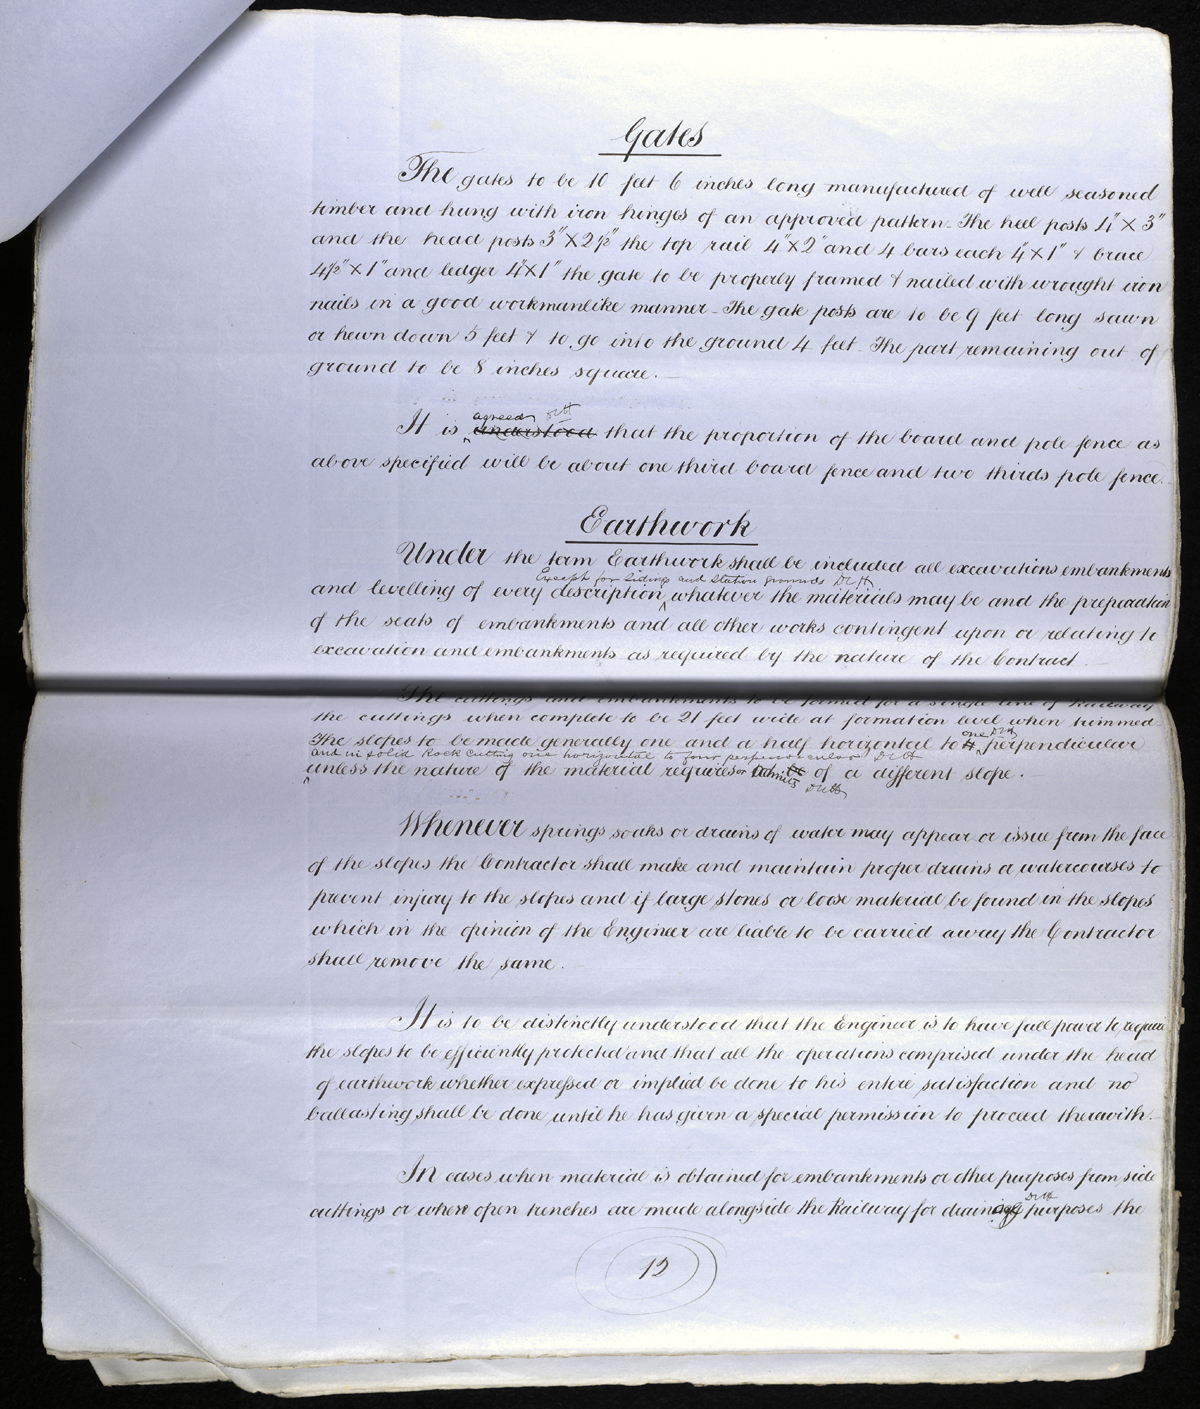 Gates
The gates to be 10 feet 6 inches long manufactured of well seasoned
timber and hung with iron hinges of an approved pattern. The heel posts 4" X 3"
and the head posts 3" X 2½" the top rail 4" X 2" and 4 bars each 4" X 1" & brace
4½" X 1" and ledger 4" X 1" the gate to be properly framed & nailed with wrought iron
nails in a good workmanlike manner – The gate posts are to be 9 feet long sawn
or hewn down 5 feet & to go into the ground 4 feet. The part remaining out of
ground to be 8 inches square. —
agreed
It is understood that the proportion of the board and pole fence as
above specified will be about one third board fence and two thirds pole fence.
Earthwork
Under the term Earthwork shall be included all excavations embankments
Except for Sidings and Station grounds
and levelling of every description whatever the materials may be and the preparation
of the seats of embankments and all other works contingent upon or relating to
excavation and embankments as required by the nature of the Contract. —
The cuttings and embankments to be formed for a single line of Railway
the cuttings when complete to be 21 feet wide at formation level when trimmed
one
The slopes to be made generally one and a half horizontal to perpendicular
and in solid Rock Cutting one horizontal to four perpendicular
unless the nature of the material requires or admits of a different slope. —
Whenever springs soaks or drains of water may appear or issue from the face
of the slopes the Contractor shall make and maintain proper drains or watercourses to
prevent injury to the slopes and if large stones or loose material be found in the slopes
which in the opinion of the Engineer are liable to be carried away the Contractor
shall remove the same. —
It is to be distinctly understood that the Engineer is to have full power to require
the slopes to be efficiently protected and that all the operations comprised under the head
of earthwork whether expressed or implied be done to his entire satisfaction and no
ballasting shall be done until he has given a special permission to proceed therewith.
In cases when material is obtained for embankments or other purposes from side
cuttings or when open trenches are made alongside the Railway for draining purposes the
12